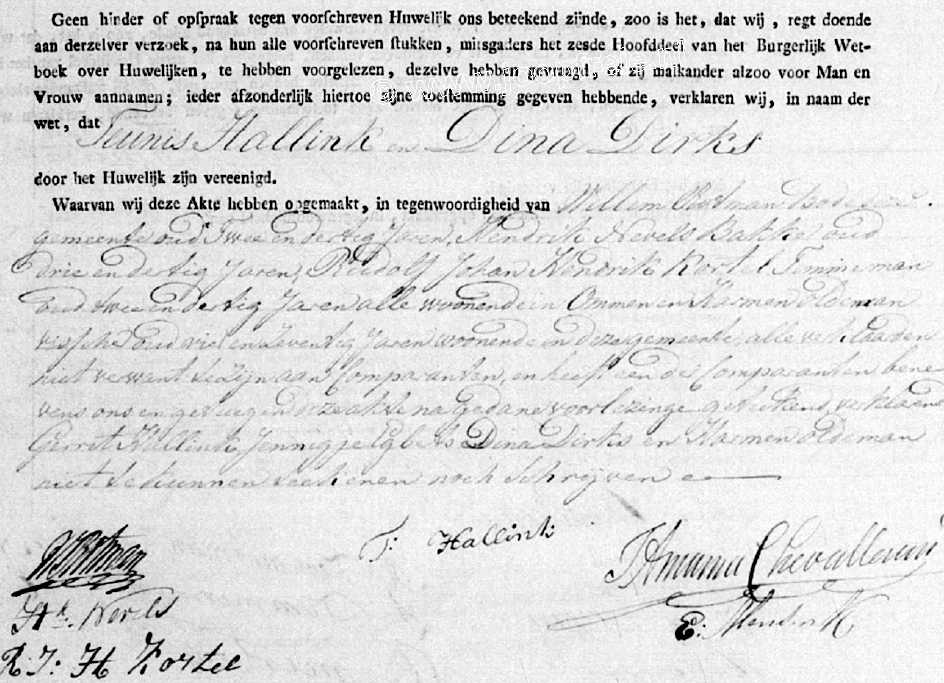 Geen hinder of opspraak tegen voorschreven Huwelijk ons beteekend zijnde, zoo is het, dat wij, regt doende
aan derzelver verzoek, na hun alle voorschreven stukken, mitsgaders het zesde Hoofddeel van het Burgerlijk Wet-
boek over Huwelijken, te hebben voorgelezen, dezelve hebben gevraagd, of zij malkander alzoo voor Man en
Vrouw aannamen; ieder afzonderlijk hiertoe zijne toestemming gegeven hebbende, verklaren wij, in naam der
wet, dat Teunis Hallink en Dina Dirks
door het Huwelijk zijn vereenigd.
Waarvan wij deze Akte hebben opgemaakt, in tegenwoordigheid van Willem Bode
gemeente oud Twee en dertig Jaren, Hendrik Nevels Bakker oud
drie en dertig Jaren, Rudolf Johan Hendrik Kortel Timmerman
oud twee en dertig Jaren alle woonende in Ommen en Harmen Oldeman
oud vier en zeventig Jaren woonende in deze gemeente, alle verklaarden
niet verwant te zijn aan Comparanten, en heeft een der Comparanten bene
vens ons en getuigen deze akte na gedane voorlezinge geteekend, verklarende
Gerrit Hallink Jennigje en Dina Dirks en Harmen Oldeman
niet te kunnen teekenen noch Schrijven
T: Hallink
Hk. Nevels
R: J: H Kortel